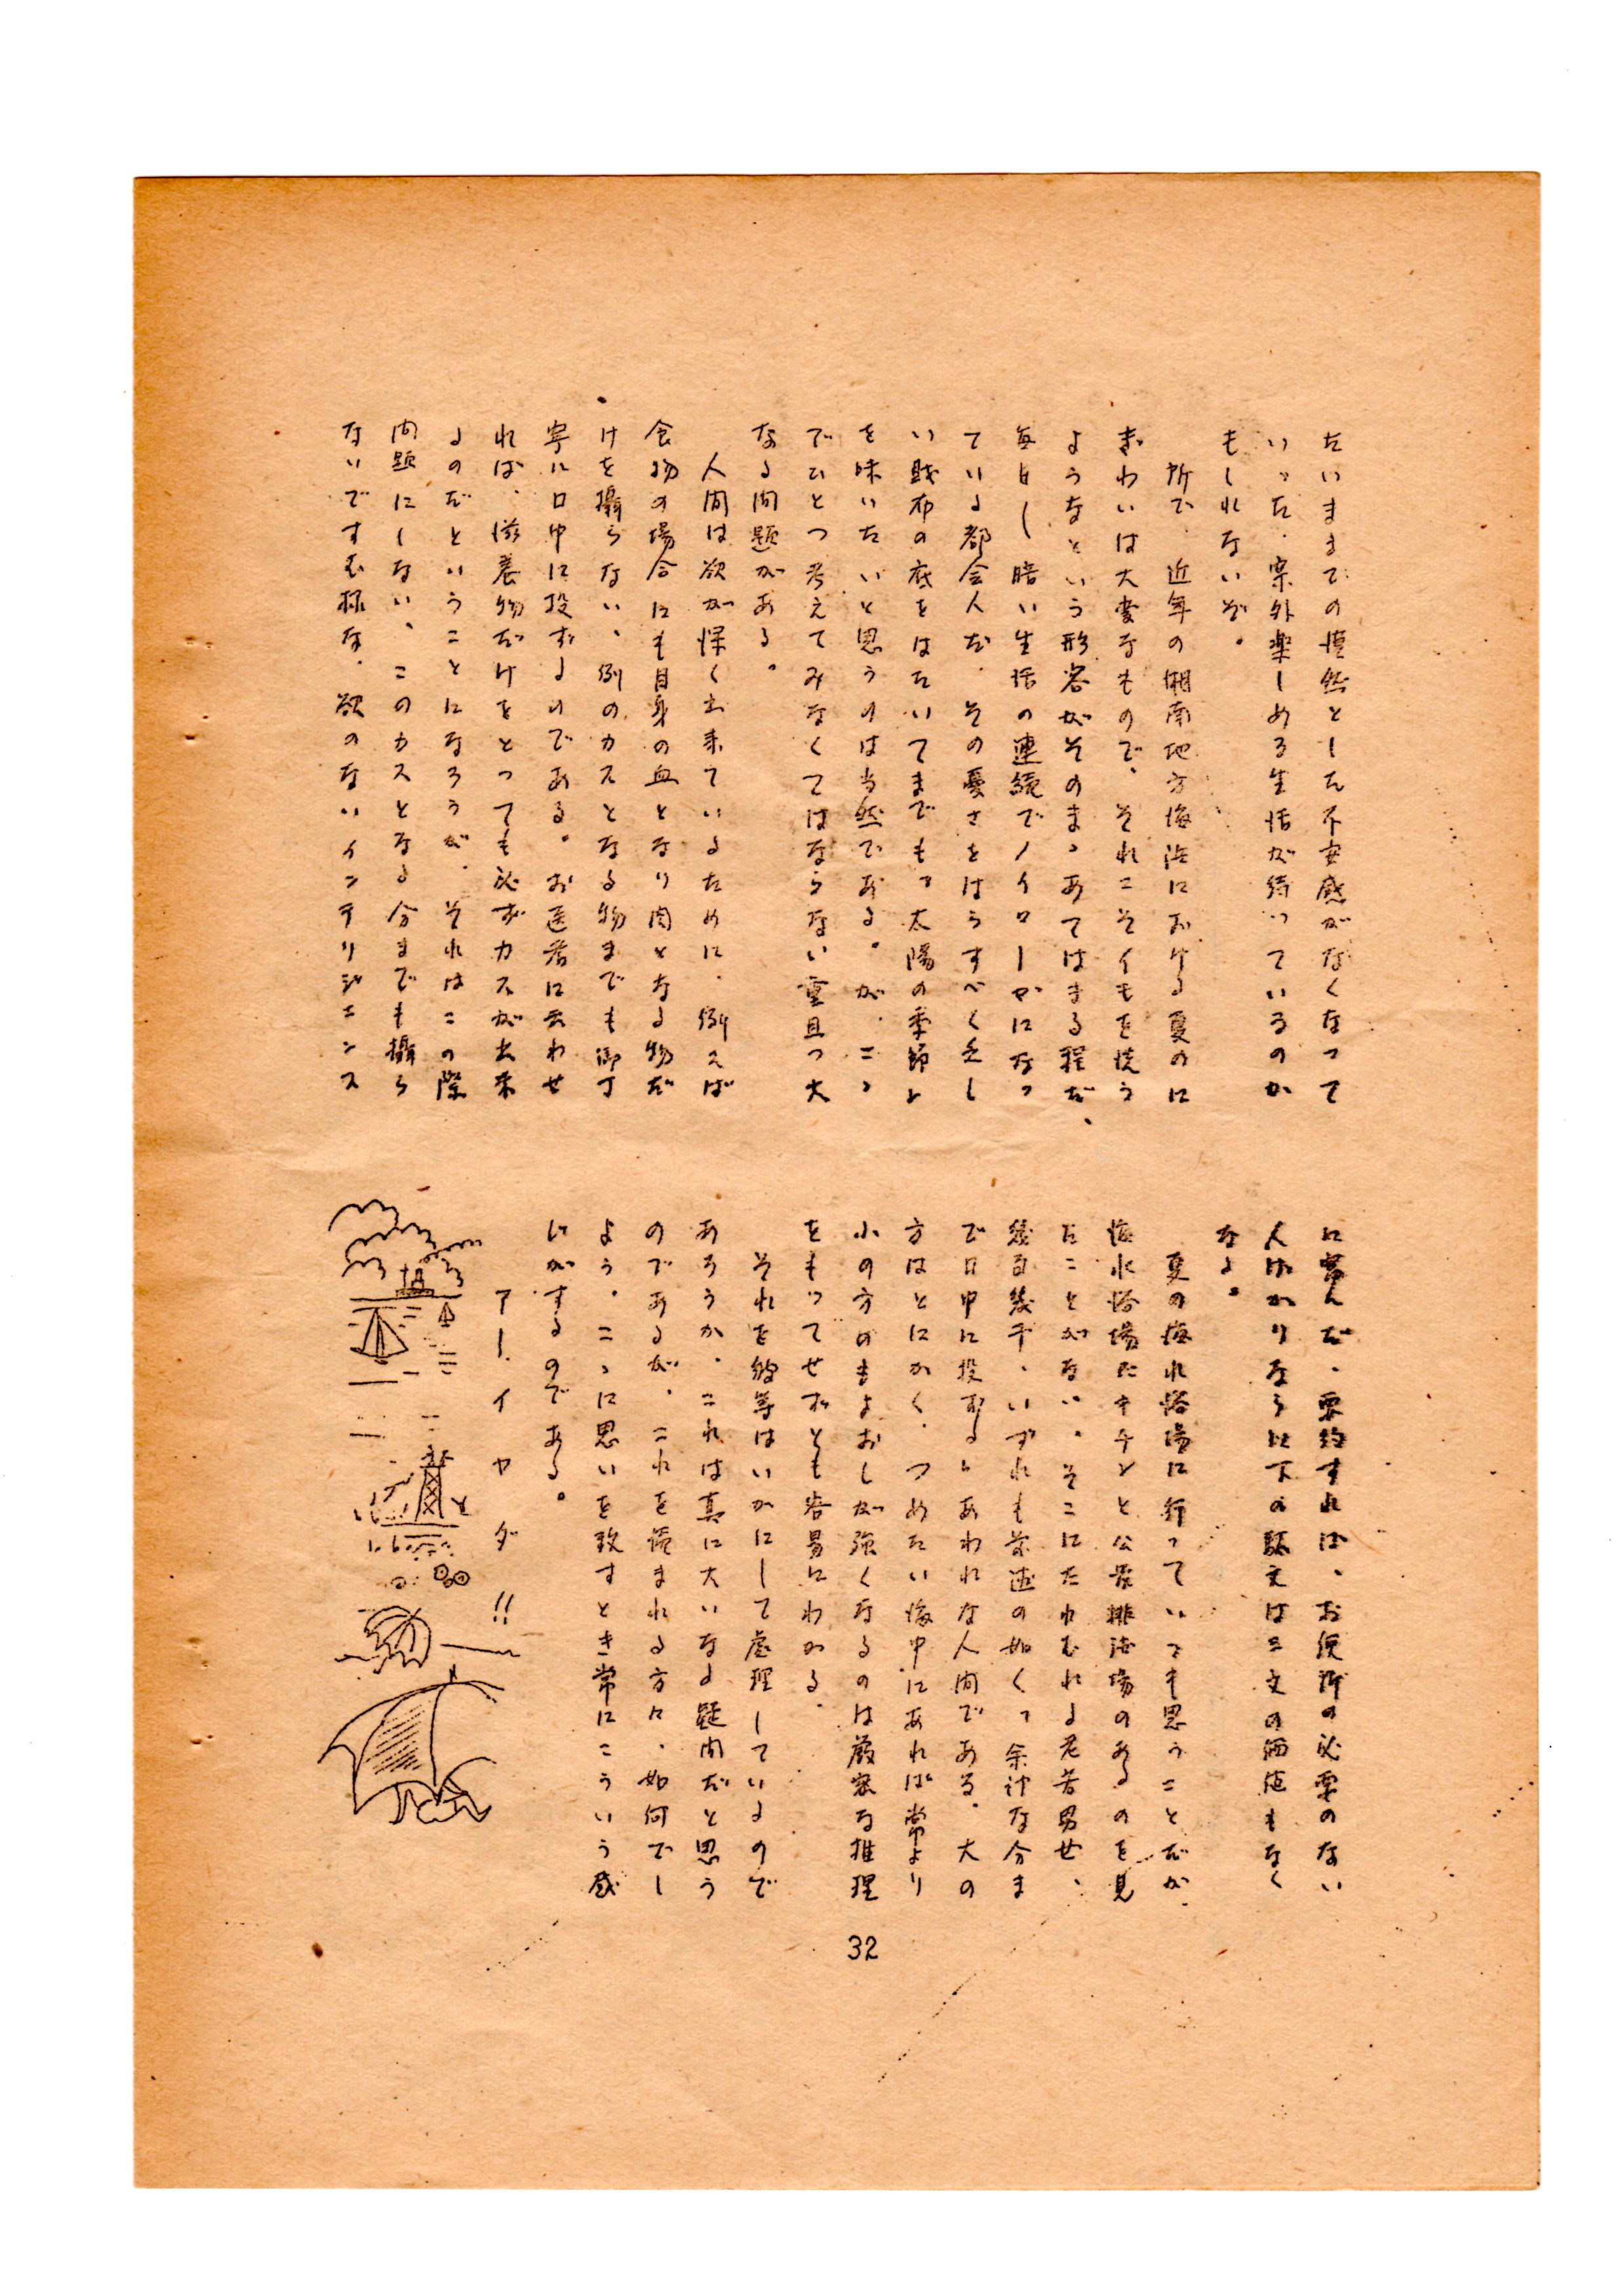 たいままでの漠然とした不安感がなくなって
いった.案外楽しめる生活が待っているのか
もしれないぞ。
所で.近年の湘南地方海浜におけるる夏のに
ぎわいは大変なもので、それこそイモを洗う
ようなという形容がそのまゝあてはまる程だ、
毎日〱暗い生活の連続でノイローゼになっ
ている都会人だ.その憂さをはらすべく乏し
い財布の底をはたいてまでもって太陽の季節と
を味いたいと思うのは当然である。が.こゝ
でひとつ考えてみなくてはならない重且つ大
なる問題がある。
人間は欲が深く出来ているために.例えば
食物の場合にも自身の血となり肉となる物だ
けを摂らない、例のカスとなる物までも御丁
寧に口中に投ずるのである。お医者に云わせ
れば、滋養物だけをとっても必ずカスが出来
るのだということになろうが.それはこの際
問題にしない、このカスとなる分までも摂ら
ないですむ様な.欲のないインテリジェンス
に富んだ、要約すれば、お便所の必要のない
人ばかりなら以下の駄文は三文の価値もなく
なる。
夏の海水浴場に行っていつも思うことだが.
海水浴場にキチンと公衆排泄場のあるのを見
たことがない.そこにたわむれる老若男女、
幾百幾千、いずれも前述の如くって余計な分ま
で口中に投ずるとあわれな人間である.大の
方はとにかく、つめたい海中にあれば常より
小の方のもよおしが強くなるのは厳密な推理
をもってせずとも容易にわかる.
それを彼等はいかにして処理しているので
あろうか.これは真に大いなる疑問だと思う
のであるが.これを読まれる方々.如何でし
ょう.こゝに思いを致すとき常にこういう感
じがするのである。
アー.イヤダ!!
32